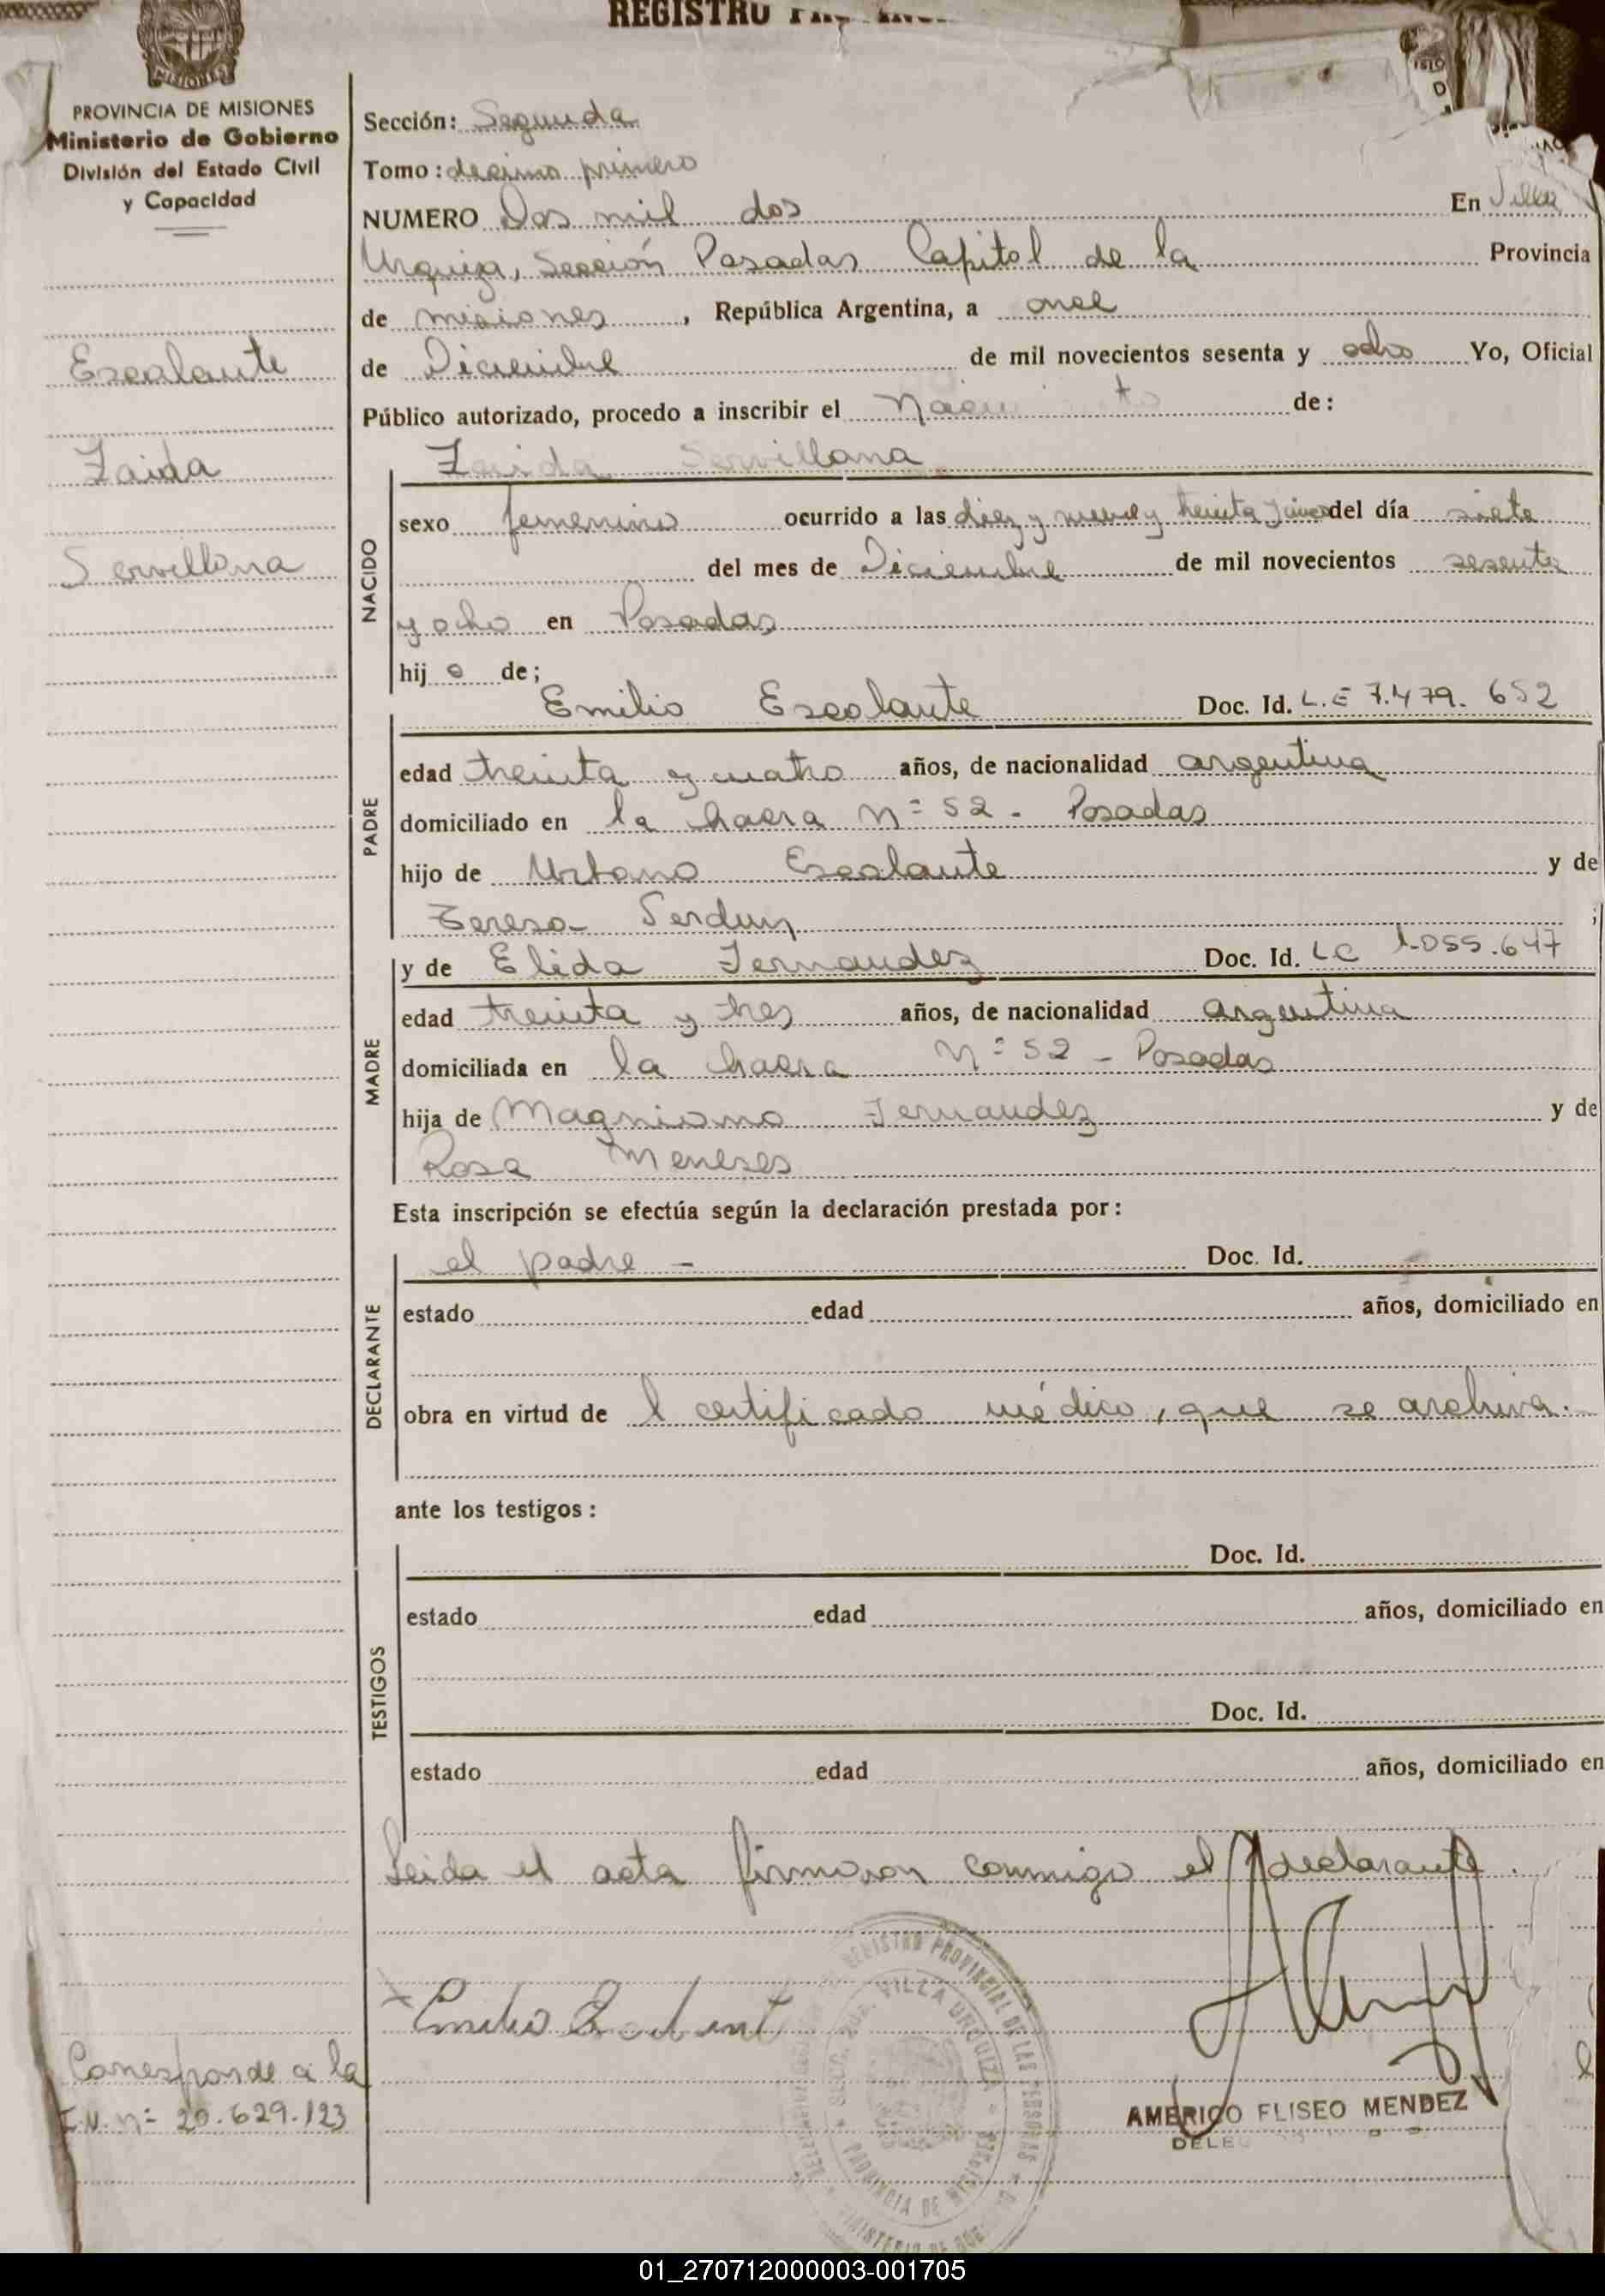 REGISTRO
MISIONES
PROVINCIA DE MISIONES
Ministerio de Gobierno
División del Estado Civil
y Capacidad
Escalante
Zaida
Servillana
Corresponde a la
I.N. nº 20.629.123
Sección: Segunda
Tomo: decimo primero
NUMERO Dos mil dos En Villa
Urquiza, Sección Posadas Capital de la Provincia
de misiones, República Argentina, a once
de Diciembre de mil novecientos sesenta y ocho Yo, Oficial
Público autorizado, procedo a inscribir el de:
Zaida Servillana
NACIDO
sexo femenino ocurrido a las diez y nueve y treinta y cinco del día siete
del mes de Diciembre de mil novecientos sesenta
y ocho en Posadas
hij a de;
PADRE
Emilio Escalante Doc. Id. L.E 7.479.652
edad treinta y cuatro años, de nacionalidad argentina
domiciliado en la chacra Nº 52 - Posadas
hijo de Urbano Escalante y de
Teresa ;
MADRE
y de Elida Fernandez Doc. Id. LC 1.055.647
edad treinta y tres años, de nacionalidad argentina
domiciliada en la chacra Nº 52 - Posadas
hija de Fernandez y de
Rosa Meneses
Esta inscripción se efectúa según la declaración prestada por:
DECLARANTE
el padre - Doc. Id.
estado edad años, domiciliado en
obra en virtud de l certificado médico, que se archiva.-
ante los testigos:
TESTIGOS
Doc. Id.
estado edad años, domiciliado en
Doc. Id.
estado edad años, domiciliado en
Leida el acta firmaron conmigo el declarante.
Emilio Escalante
REGISTRO PROVINCIAL DE LAS PERSONAS
VILLA URQUIZA
PROVINCIA DE MISIONES
AMERICO ELISEO MENDEZ
01_270712000003-001705